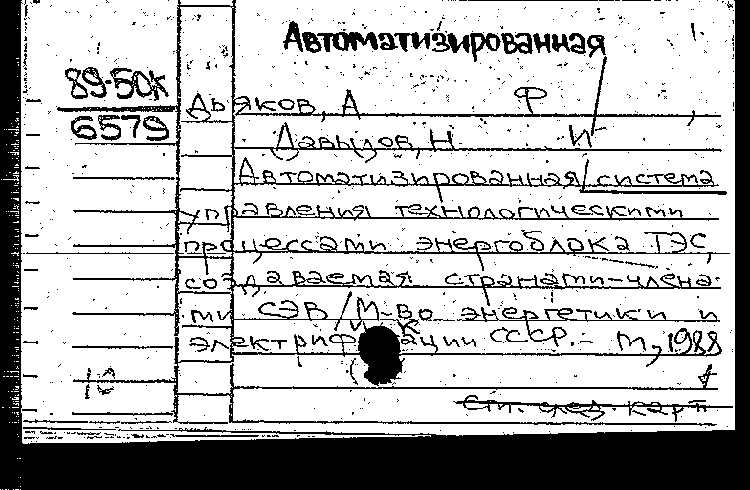 Автоматизированная
89-50К
6579
Дьяков, А Ф ,
Давыдов, Н И
Автоматизированная/система
управления технологическими
процессами энергоблока ТЭС,
создаваемая странами-члена-
ми СЭВ/М-во энергетики и
электрификации СССР.- М, 1988
10
См. след. карт